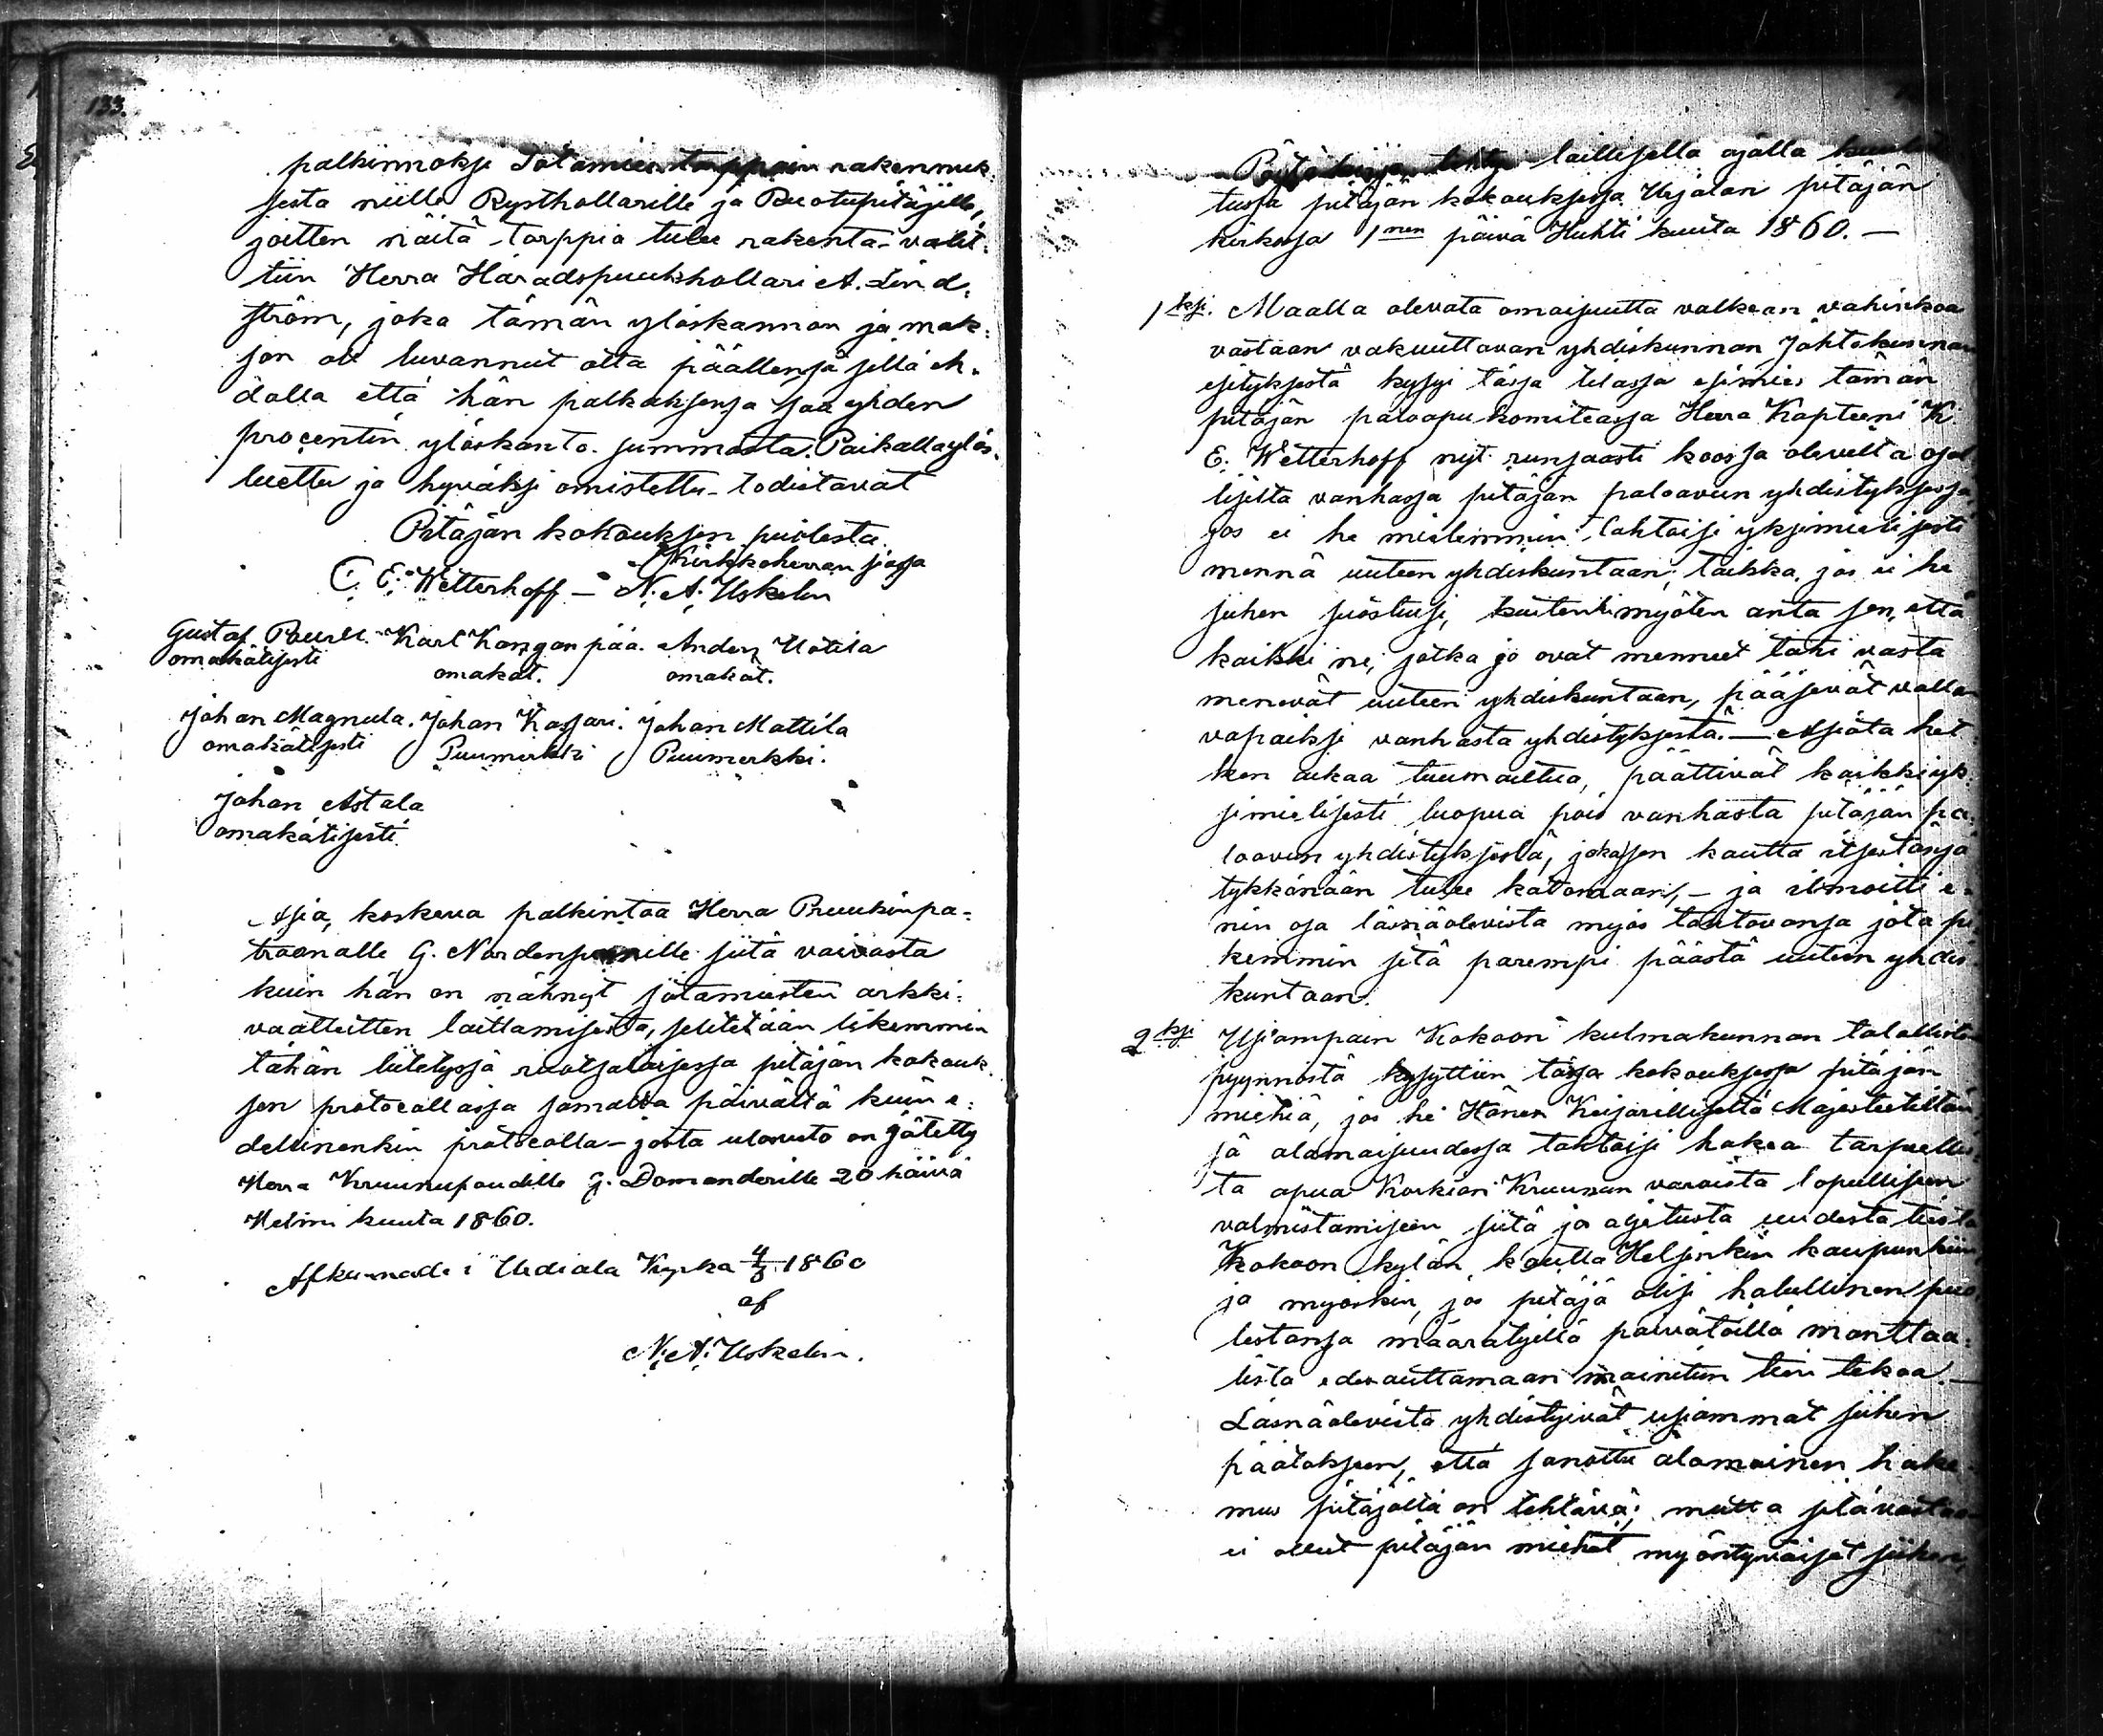 133.
palkinnoksi Sotamiestorppain rakennuk-
sesta niille Rysthollarille ja Ruotupitäjille,
joitten näitä torppia tulee rakenta- valit-
tiin Herra Häradspuukhollari A. Lind-
ström, joka tämän ylöskannon ja mak-
son oli luvannut otta päällensä sillä eh-
dolla että hän palkaksensa saa yhden
procentin ylöskanto summasta. Paikalla ylös-
luettu ja hyväksi omistettu- todistavat
Pitäjän kokouksen puolesta
Kirkkoherran siassa
C. E. Wetterhoff - N. A. Uskelin
Gustaf Kart Kanganpää. Anders Uotila
omakätisesti omakät. omakät.
Johan Magnula. Johan Kassari. Johan Mattila
omakätisesti Puumerkki Puumerkki.
Johan Astala
omakätisesti
Asia, koskeva palkintaa Herra Pruukinpa-
troonalle G. Nordenswanille siitä vaivasta
kuin hän on nähnyt sotamiesten arkki-
vaatteitten laittamisesta, selitetään likemmin
tähän liitetyssä ruotsalaisessa pitäjän kokouk-
sen protocallassa samalta päivältä kuin e-
dellinenkin protocolla- josta ulosveto on jätetty
Herra Kruununpoudille G. Domanderille 20 päivä
Helmi kuuta 1860.
Afkunnade i Urdiala Kyrka 4/3 1860
af
N. A. Uskelin.
Pöytäkirja, tehty laillisella ajalla kuulu-
tussa pitäjän kokouksessa Urjalan pitäjän
kirkossa 1nen päivä Huhti kuuta 1860. —
1ksi. Maalla olevata omaisuutta valkean vahinkoa
vastaan vakuuttavan yhdiskunnan Johtokunnan
esityksestä kysyi tässä tilassa esimies tämän
pitäjän paloapu komiteassa Herra Kapteeni K.
E. Wetterhoff nyt runsaasti koossa olevilta osal-
lisilta vanhassa pitäjän paloavun yhdistyksessä
jos ei he mielemmin tahtoisi yksimielisesti
mennä uuteen yhdiskuntaan; taikka, jos ei he
siihen suostuisi, kuitenki myöten anta sen, että
kaikki ne, jotka jo ovat menneet tahi vasta
menevät uuteen yhdiskuntaan, pääsevät vallan
vapaiksi vanhasta yhdistyksestä. — Asiata het-
ken aikaa tuumailtua, päättivät kaikki yk-
simielisesti luopua pois vanhasta pitäjän pa-
loavun yhdistyksestä, joka sen kautta itsestänsä
tykkänään tulee katomaan, - ja ilmoitti e-
nin osa läsnäolevista myös tahtovansa jota pi-
kemmin sitä parempi päästä uuteen yhdis-
kuntaan.
2ksi Usiampain Kokoon kulmakunnan talollisten
pyynnöstä kysyttiin tässä kokouksessa pitäjän
miehiä, jos he Hänen Keisarilliselta Majesteetiltän-
sä alamaisuudessa tahtoisi hakea tarpeellis-
ta apua Korkian Kruunun varoista lopullisen
valmistamiseen siitä ja ajetusta uudesta tiestä
Kokoon kylän kautta Helsinkin kaupunkiin,
ja myöskin, jos pitäjä olisi halullinen puo-
lestansa määrätyillä päivätöillä manttaa-
lista edesauttamaan mainitun tien tekoa —
Läsnäolevista yhdistyivät usiammat siihen
päätökseen, että sanottu alamainen hake-
mus pitäjältä on tehtävä; mutta sitä vastaan
ei olleet pitäjän miehet myöntyväiset siihen,